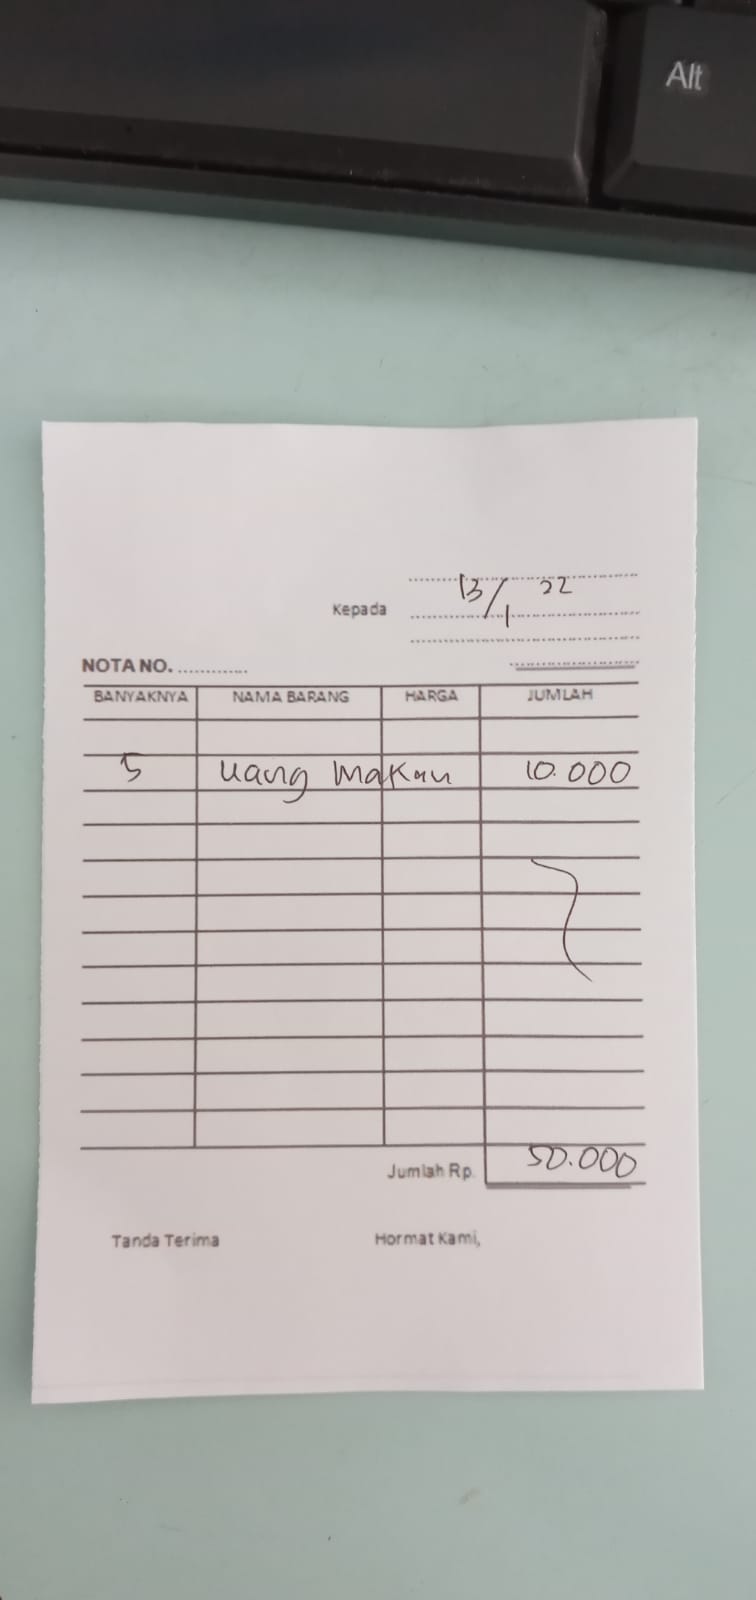 Alt
13/1 22
Kepada
NOTA NO. ............
BANYAKNYA NAMA BARANG HARGA JUMLAH
5 uang makan 10.000
Jumlah Rp. 50.000
Tanda Terima Hormat Kami,